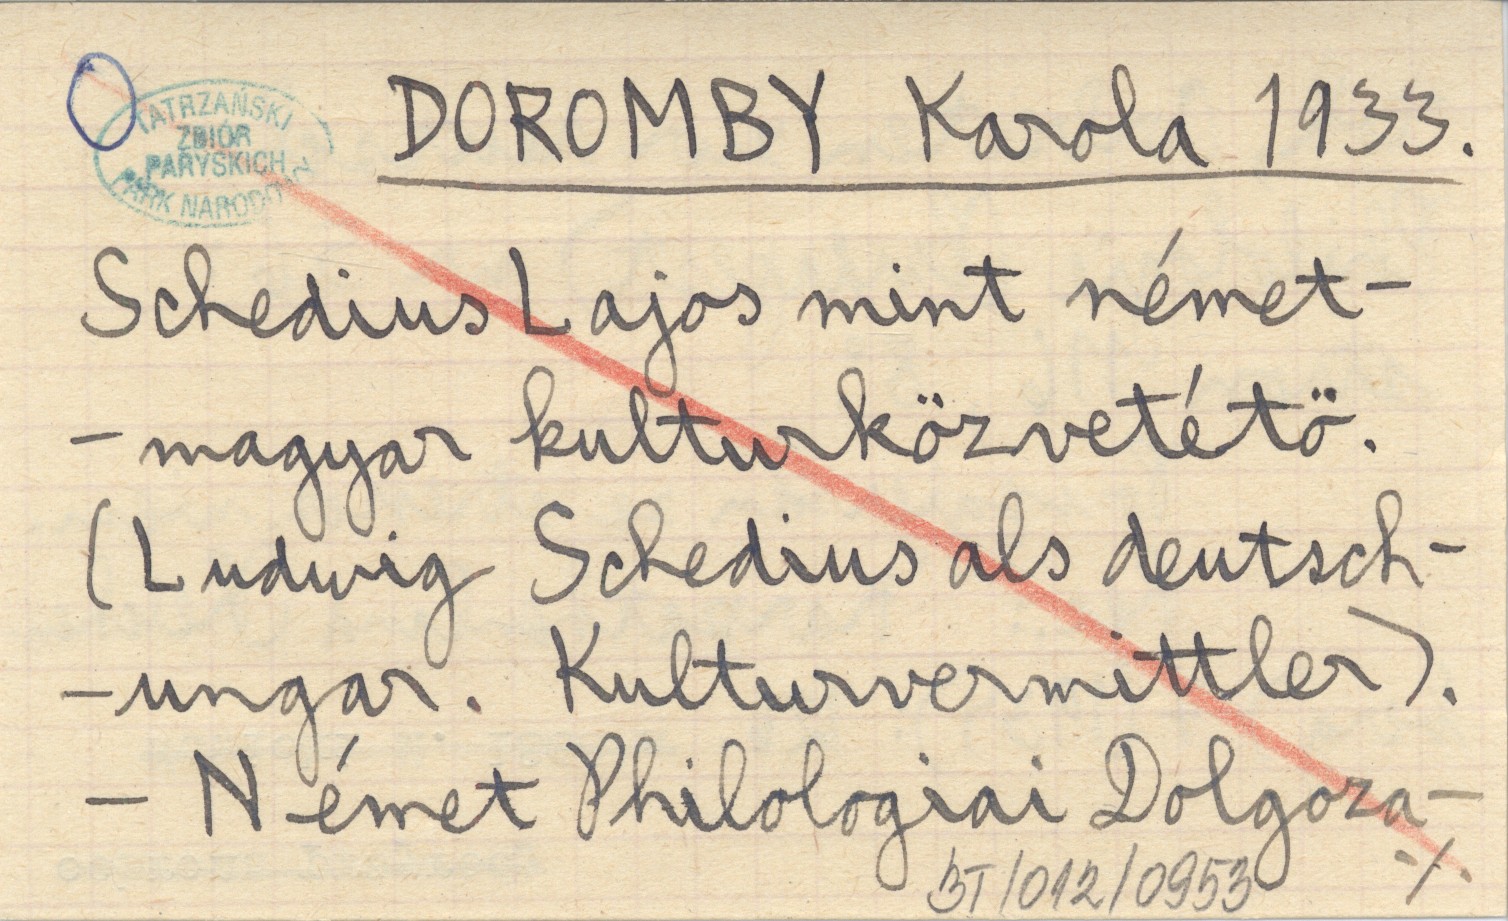 TATRZAŃSKI
ZBIÓR
PARYSKICH
PARK NARODOWY
DOROMBY Karola 1933.
Schedius Lajos mint német-
-magyar kulturközvetétö.
(Ludwig Schedius als deutsch-
-ungar. Kulturvermittler).
- Német Philologiai Dolgoza-
BT/012/0953
-/.